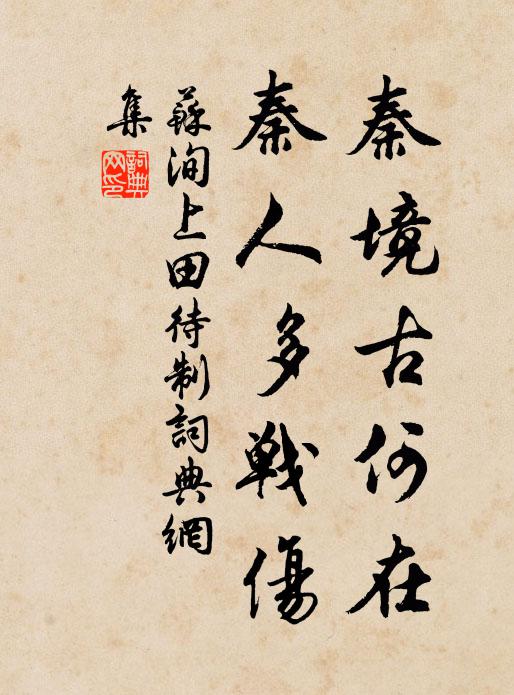 秦境古何在
秦人多戰傷
蘇洵上田待制詞典網
集
詞典
网印